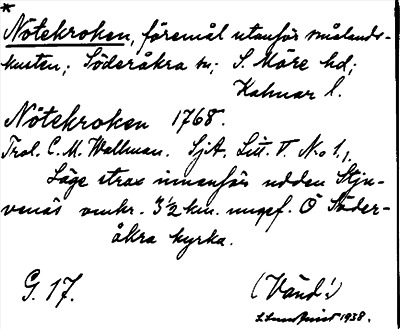 *
Nötekroken, föremål utanför smålands-
kusten; Söderåkra sn; S. Möre hd;
Kalmar l.
Nötekroken 1768.
Trol. C. M. Wallman. SjA, Litt. V. No 1.
Läge strax innanför udden Stju-
venäs omkr. 3½ km. ungef. O Söder-
åkra kyrka.
G. 17.
(Vänd!)
S. Lundkvist 1938.